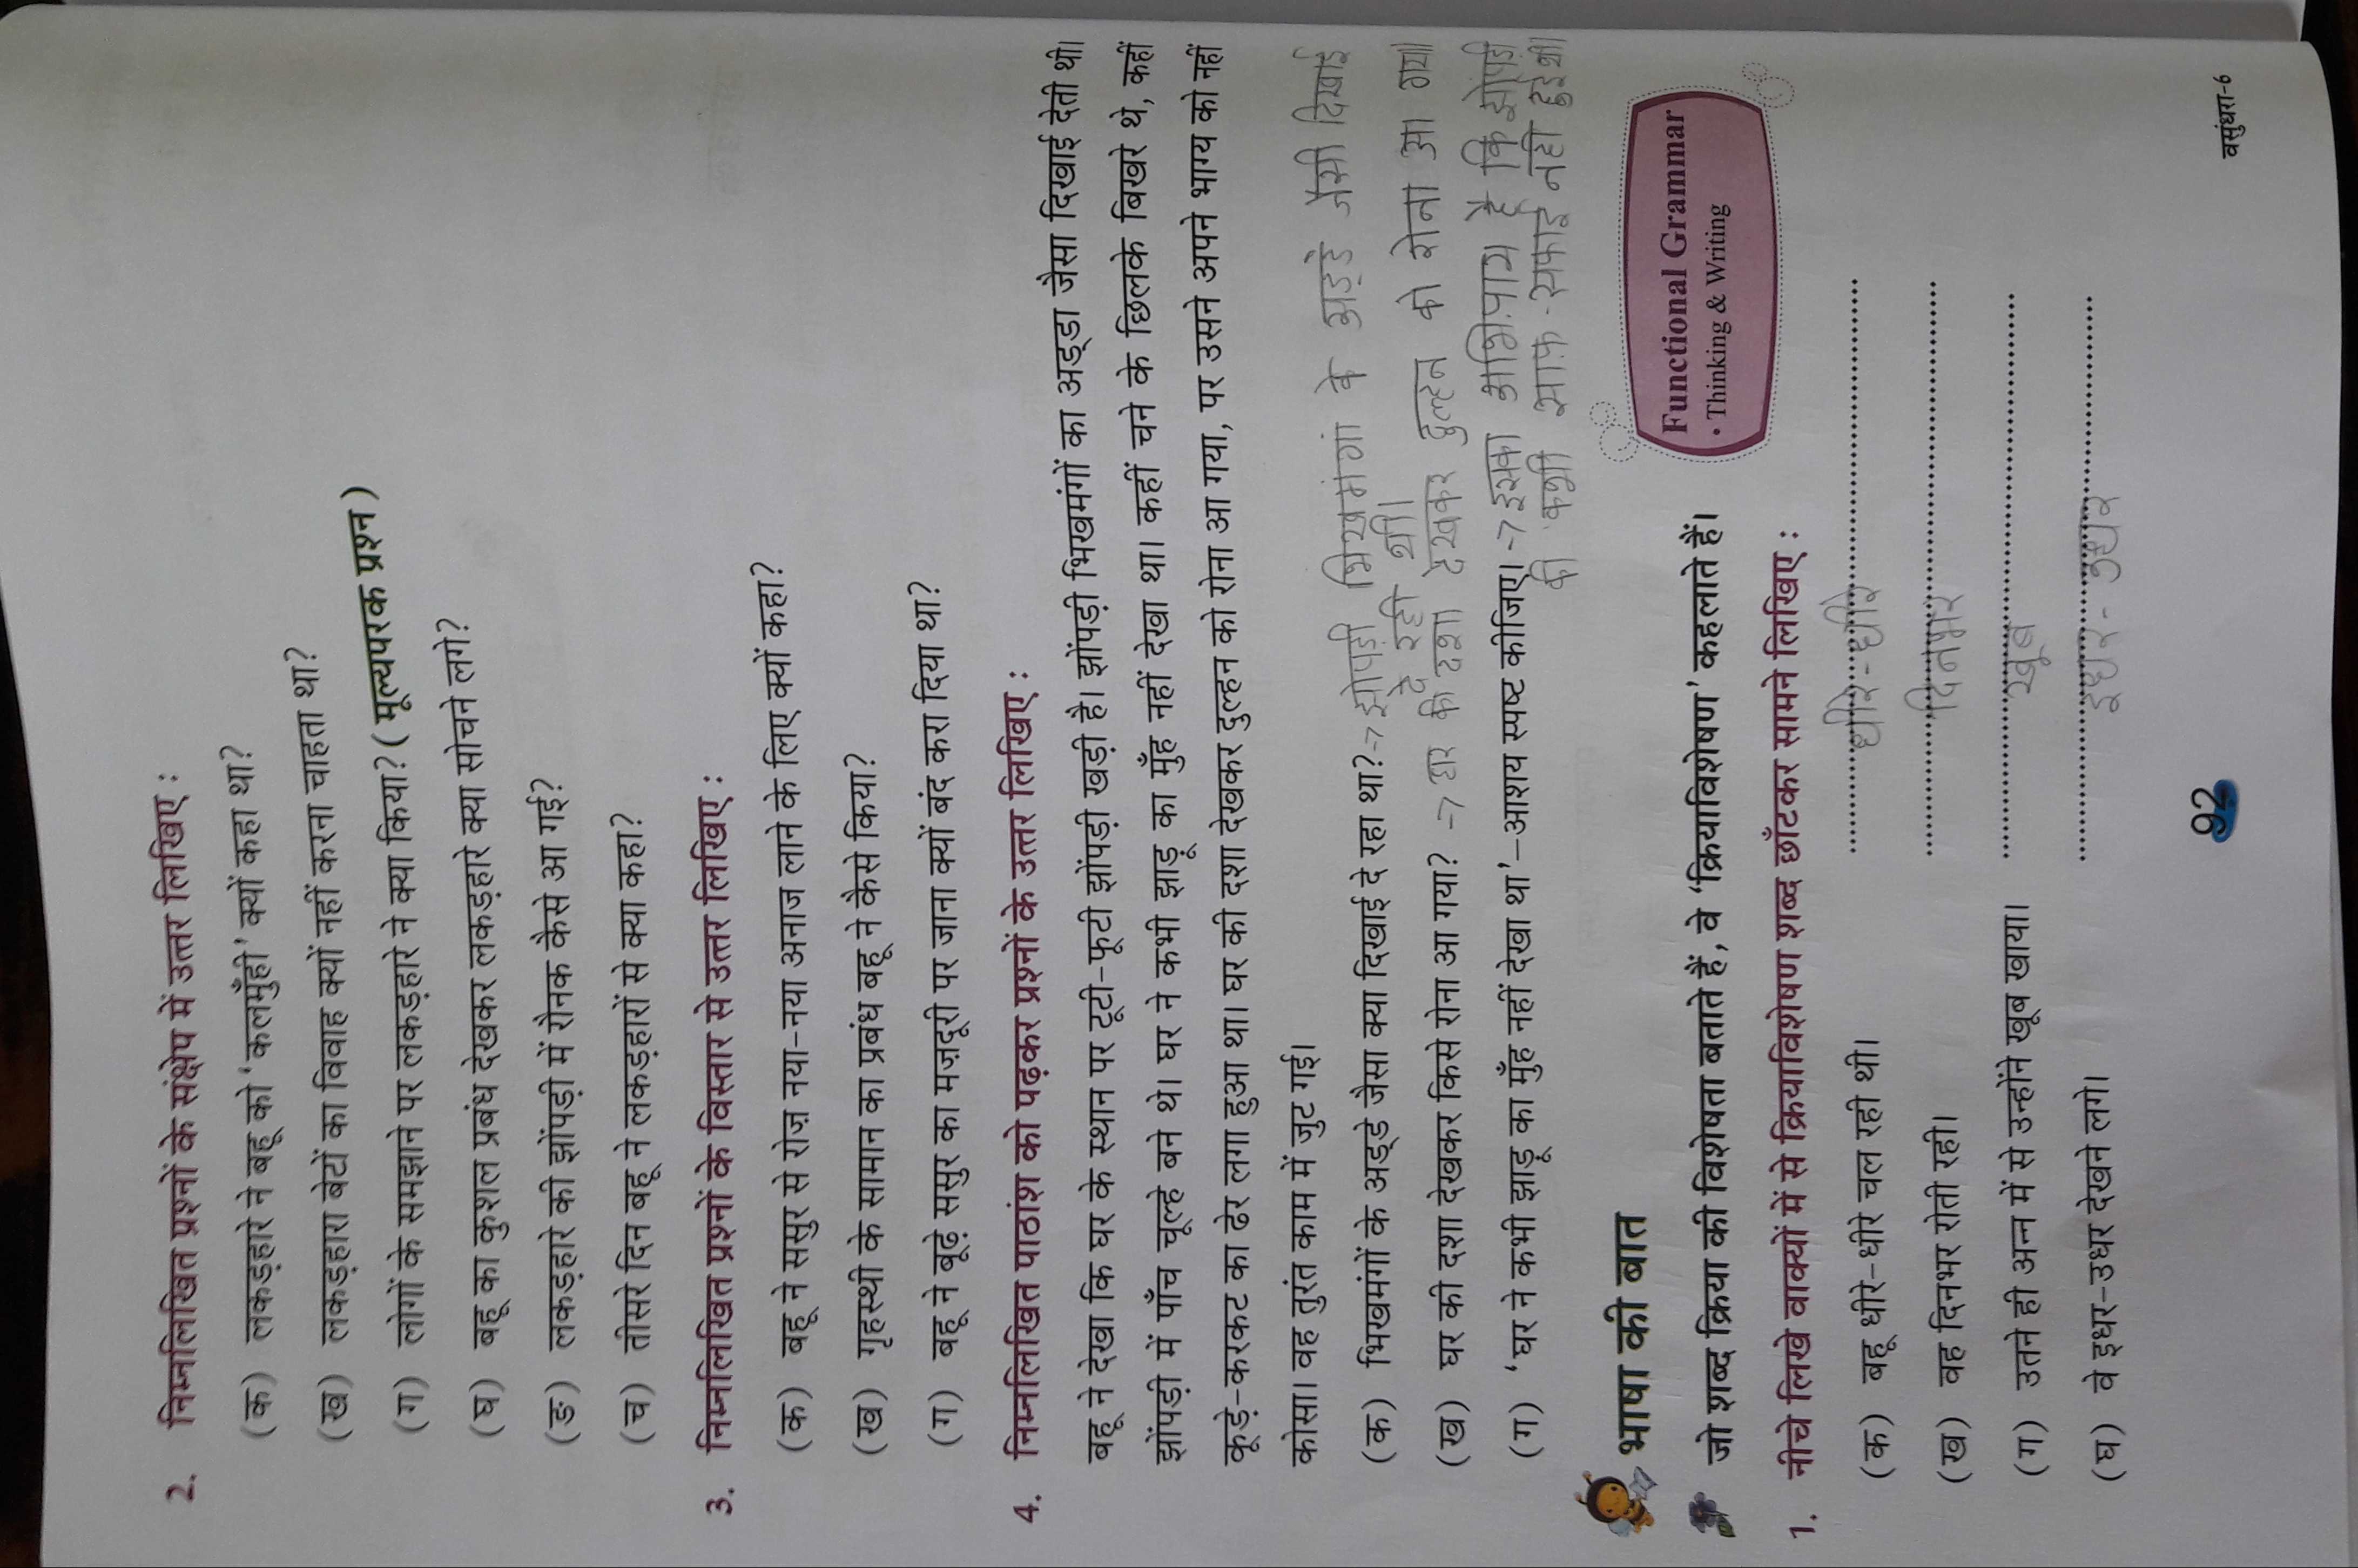 2. निम्नलिखित प्रश्नों के संक्षेप में उत्तर लिखिए :
(क) लकड़हारे ने बहू को 'कलमुँही' क्यों कहा था?
(ख) लकड़हारा बेटों का विवाह क्यों नहीं करना चाहता था?
(ग) लोगों के समझाने पर लकड़हारे ने क्या किया? (मूल्यपरक प्रश्न)
(घ) बहू का कुशल प्रबंध देखकर लकड़हारे क्या सोचने लगे?
(ङ) लकड़हारे की झोंपड़ी में रौनक कैसे आ गई?
(च) तीसरे दिन बहू ने लकड़हारों से क्या कहा?
3. निम्नलिखित प्रश्नों के विस्तार से उत्तर लिखिए :
(क) बहू ने ससुर से रोज़ नया-नया अनाज लाने के लिए क्यों कहा?
(ख) गृहस्थी के सामान का प्रबंध बहू ने कैसे किया?
(ग) बहू ने बूढ़े ससुर का मज़दूरी पर जाना क्यों बंद करा दिया था?
4. निम्नलिखित पाठांश को पढ़कर प्रश्नों के उत्तर लिखिए :
बहू ने देखा कि घर के स्थान पर टूटी-फूटी झोंपड़ी खड़ी है। झोंपड़ी भिखमंगों का अड्डा जैसा दिखाई देती थी।
झोंपड़ी में पाँच चूल्हे बने थे। घर ने कभी झाड़ू का मुँह नहीं देखा था। कहीं चने के छिलके बिखरे थे, कहीं
कूड़े-करकट का ढेर लगा हुआ था। घर की दशा देखकर दुल्हन को रोना आ गया, पर उसने अपने भाग्य को नहीं
कोसा। वह तुरंत काम में जुट गई।
(क) भिखमंगों के अड्डे जैसा क्या दिखाई दे रहा था? → झोपड़ी भिखमंगों के अड्डे जैसी दिखाई
दे रही थी।
(ख) घर की दशा देखकर किसे रोना आ गया? → घर की दशा देखकर दुल्हन को रोना आ गया
(ग) 'घर ने कभी झाड़ू का मुँह नहीं देखा था'–आशय स्पष्ट कीजिए। → इसका अभिप्राय है कि झोपड़ी
की कभी साफ-सफाई नही हुई थी।
भाषा की बात
Functional Grammar
• Thinking & Writing
जो शब्द क्रिया की विशेषता बताते हैं, वे 'क्रियाविशेषण' कहलाते हैं।
1. नीचे लिखे वाक्यों में से क्रियाविशेषण शब्द छाँटकर सामने लिखिए :
(क) बहू धीरे-धीरे चल रही थी। धीरे-धीरे
(ख) वह दिनभर रोती रही। दिनभर
(ग) उतने ही अन्न में से उन्होंने खूब खाया। खूब
(घ) वे इधर-उधर देखने लगे। इधर-उधर
92
वसुंधरा-6